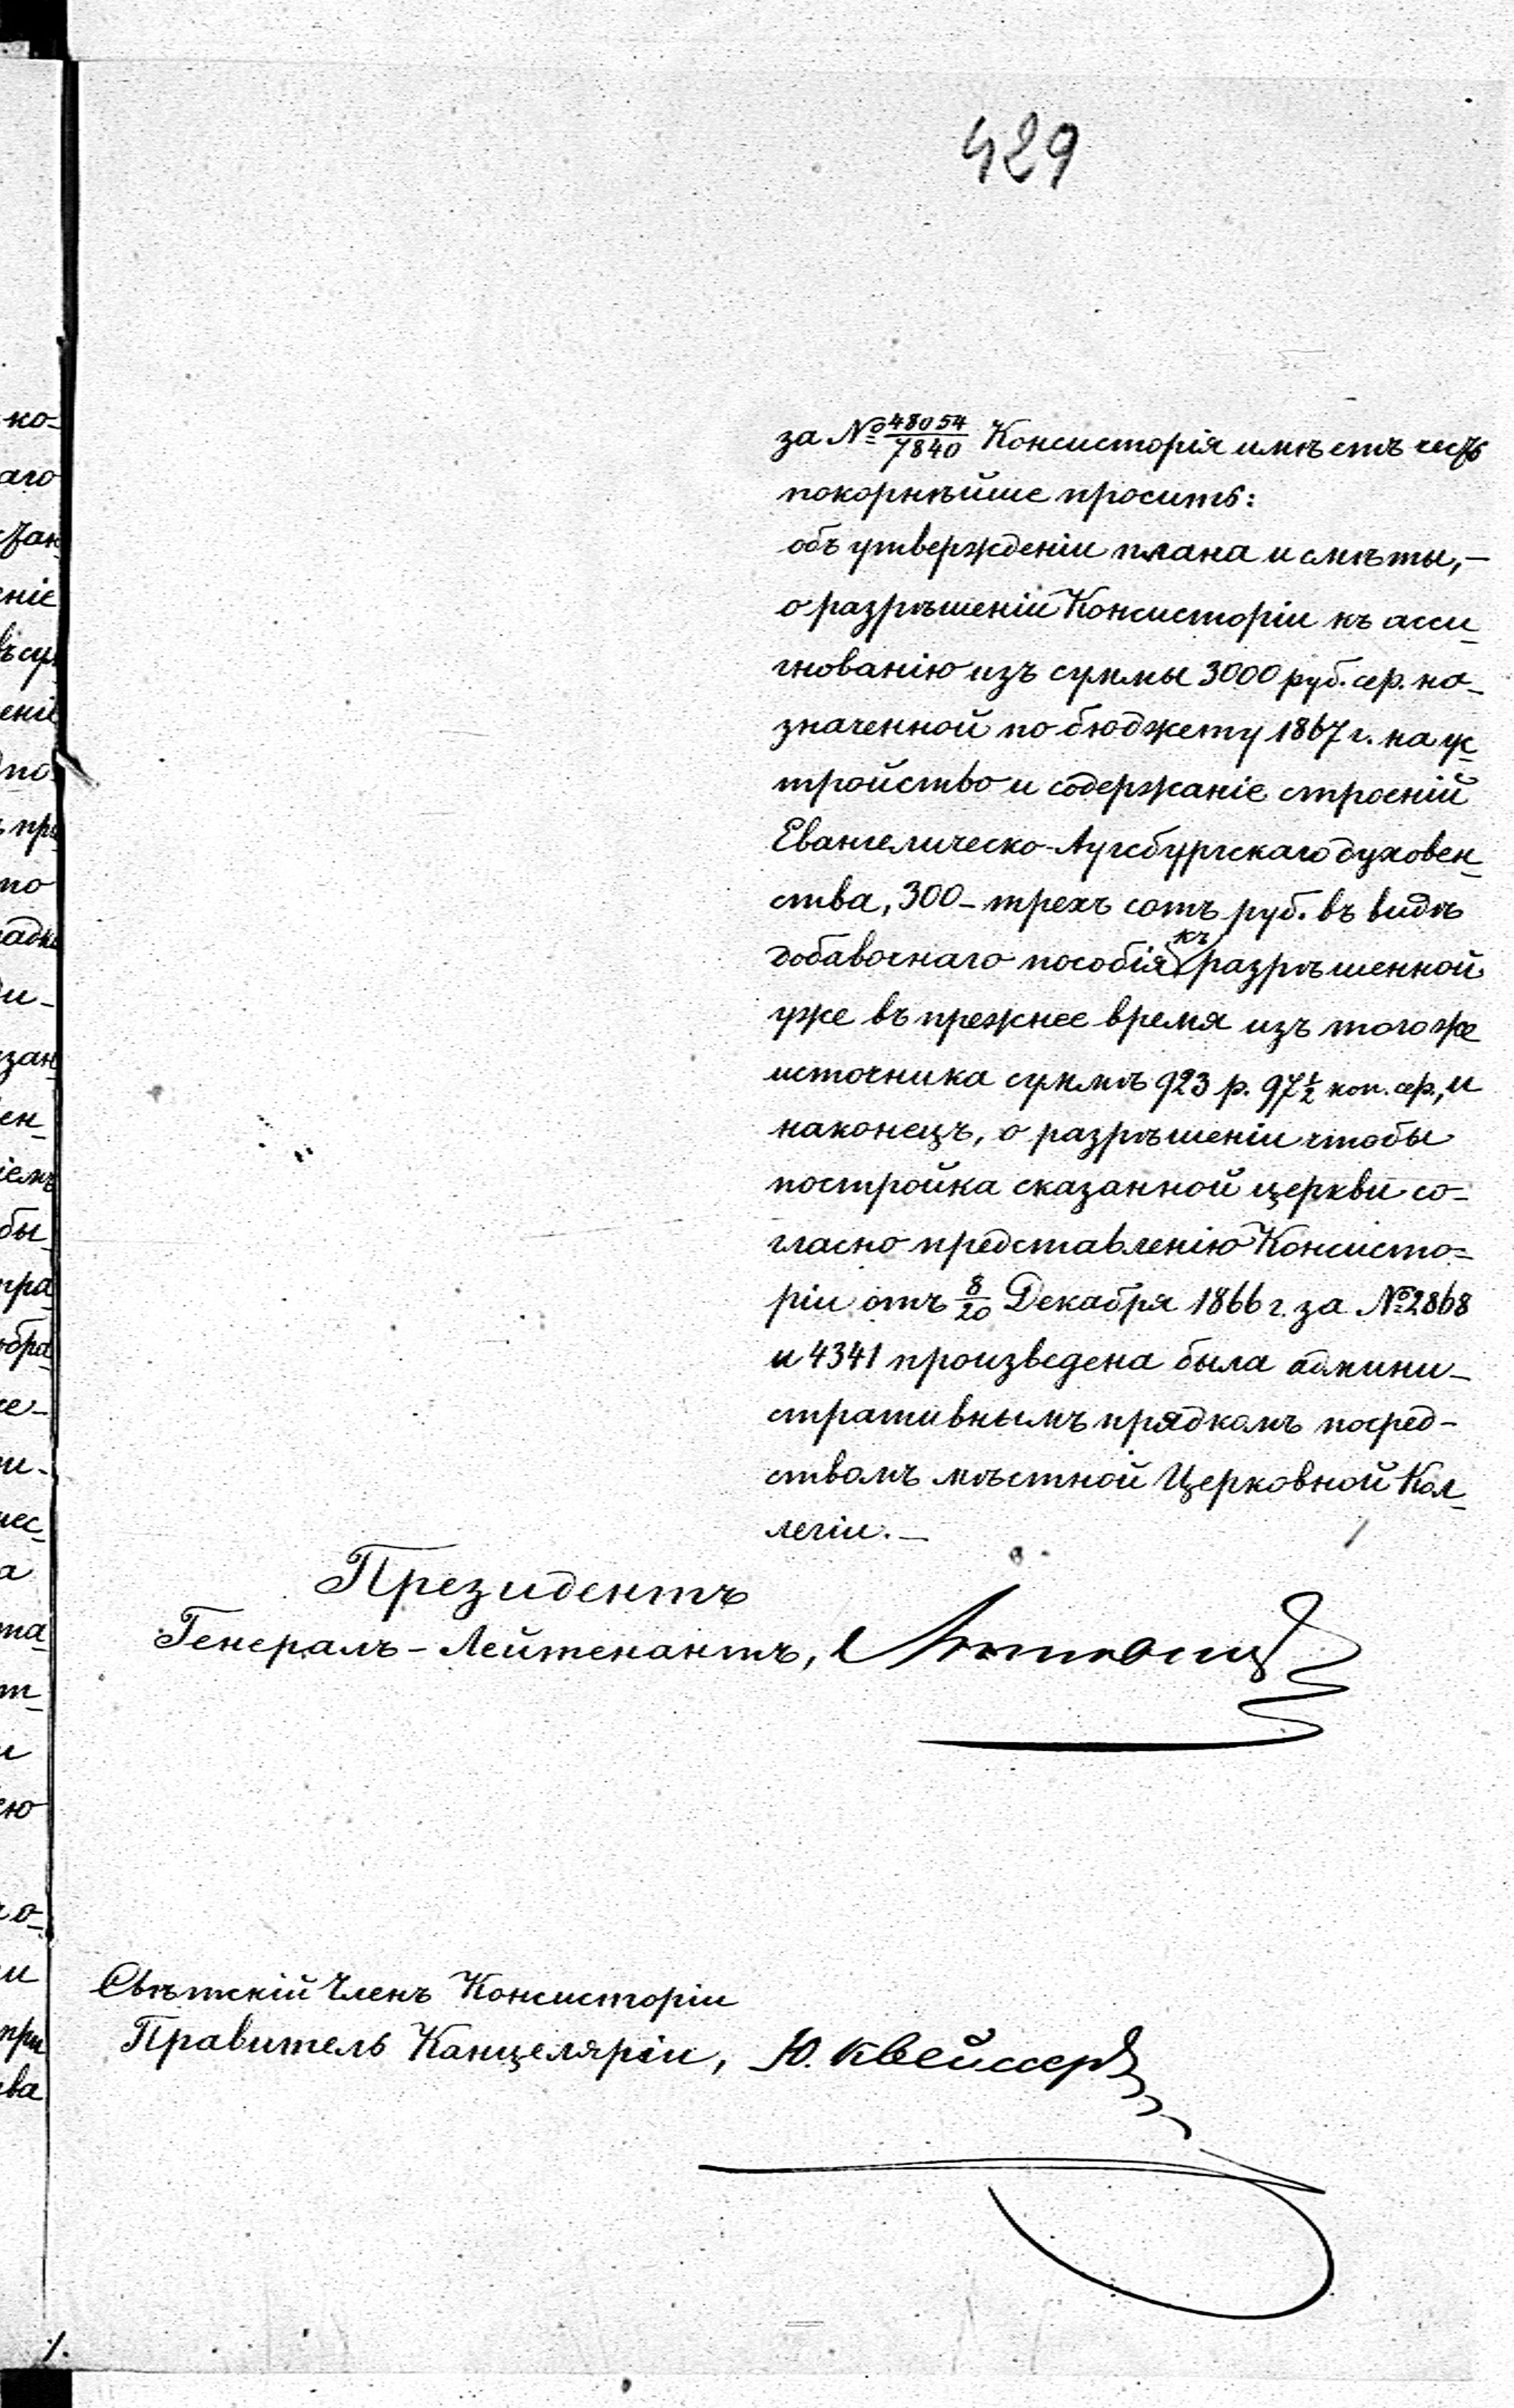 429
за № 48054/7840 Консисторія имѣетъ честь
покорнѣйше просить:
объ утвержденіи плана и смѣты,—
о разрѣшеніи Консисторіи къ асси-
гнованію изъ суммы 3000 руб. сер. на-
значенной по бюджету 1867 г. на ус-
тройство и содержаніе строеній
Евангелическо-Аугсбургскаго духовен-
ства, 300 - трехъ сотъ руб. въ видѣ
добавочнаго пособія къ разрѣшенной
уже въ прежнее время изъ того же
источника суммѣ 923 р. 97½ коп. сер., и
наконецъ, о разрѣшеніи чтобы
постройка сказанной церкви со-
гласно представленію Консисто-
ріи отъ 8/20 Декабря 1866 г. за № 2868
и 4341 произведена была админи-
стративнымъ прядкомъ посред-
ствомъ мѣстной Церковной Кол-
легіи.—
Президентъ
Генералъ-Лейтенантъ,
Свѣтскій Членъ Консисторіи
Правитель Канцеляріи, Ю. Квейссеръ